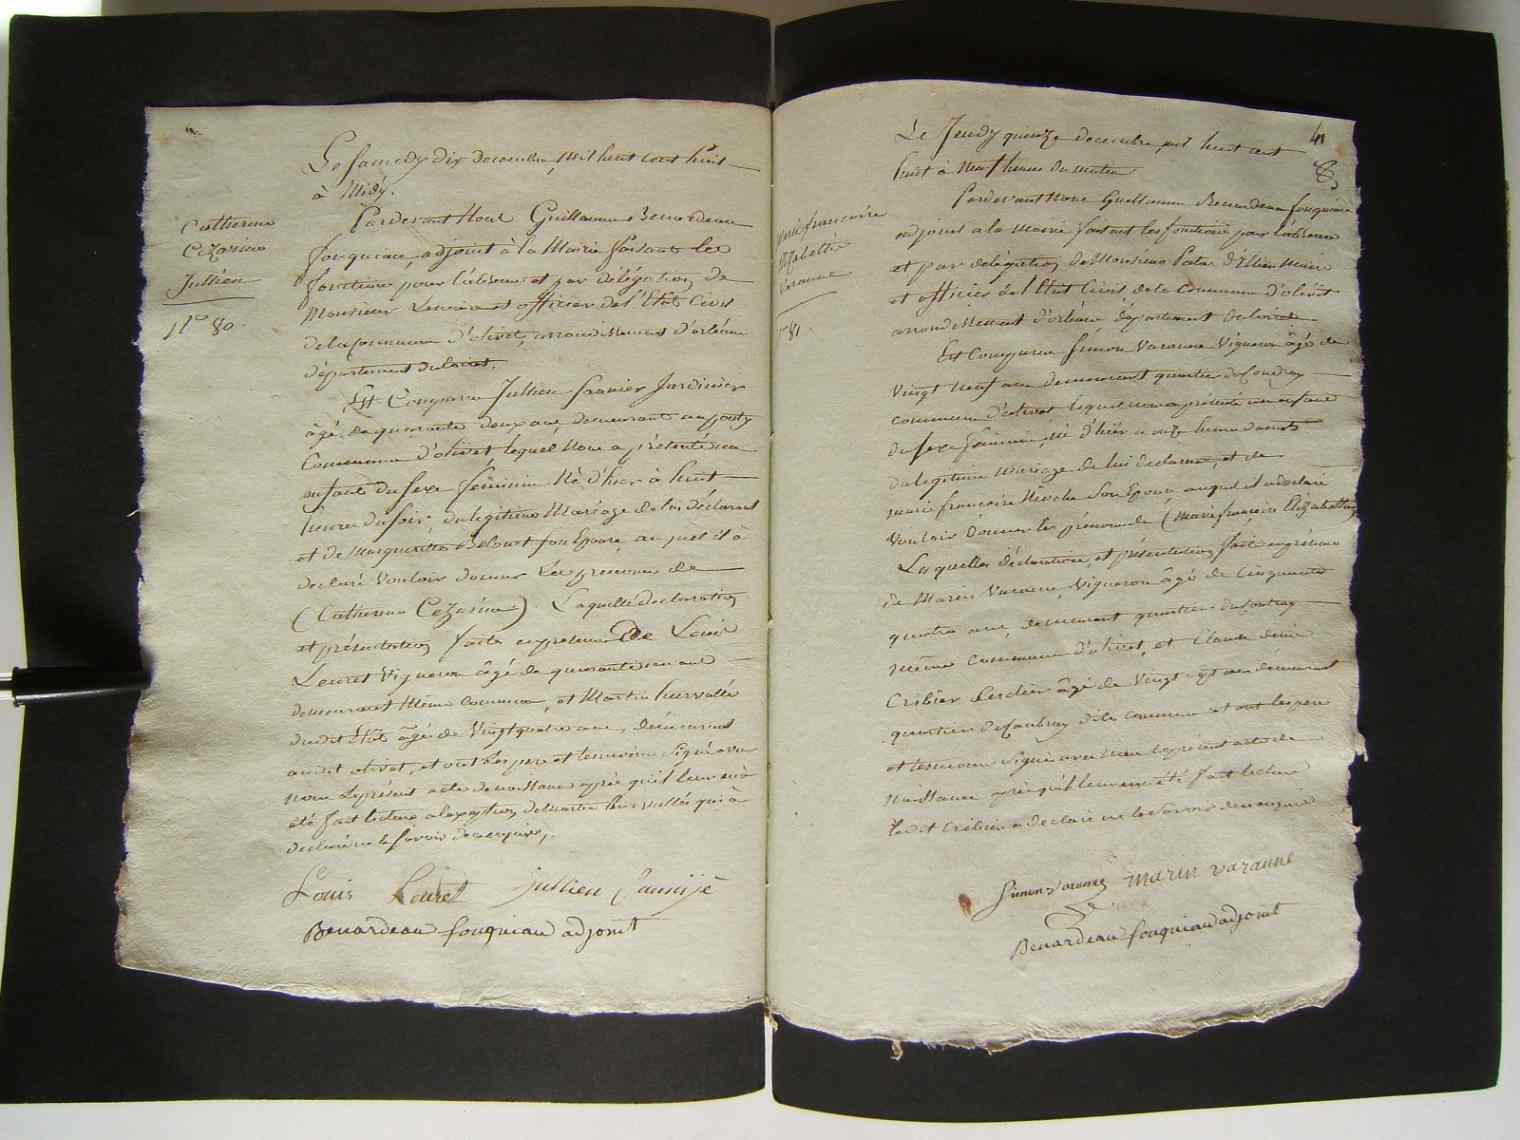 Le samedy dix decembre mil huit cent huit
à Midy.
Catherine
Cezarine
Jullien
N.o 80.
Pardevant Nous Guillaume Benardeau
fouquiau, adjoint à la Mairie faisant les
fonctions pour l'absence et par délégation de
Monsieur Le maire et officier de l'Etat Civil
de la Commune d'olivet, arrondissement d'orléans
département du loiret.
Est Comparu Jullien Jardinier
âgé de quarante deux ans, demeurant au
Commune d'olivet, lequel Nous a présenté un
enfant du sexe féminin Né d'hier à huit
heures du soir, du legitime Mariage de lui déclarant
et de Margueritte son Epouse, au quel il à
declaré vouloir donner Les prenoms de
(Catherine Cezarine). Laquelle declaration
et présentation faite en presence De Louis
Louret Vigneron âgé de quarante un ans
demeurant même Commune, et Martin
dudit Etat âgé de Vingt quatre ans, demeurant
audit olivet, et ont Les pere et temoins signé avec
nous Le présent acte de naissance après qu'il leur en à
été fait lecture à l'exception de Martin qui à
declaré ne le savoir de ce enquis.
Louis Louret jullien
Benardeau fouquiau adjoint
41
Le Jeudy quinze decembre mil huit cent
huit à Neuf heures du matin
Marie françoise
Elizabeth
Varanne
N.o 81.
Pardevant Nous Guillaume Benardeau fouquiau
adjoint à la Mairie faisant les fonctions pour l'absence
et par délégation de Monsieur Maire
et officier de l'Etat Civil de la Commune d'olivet
arrondissement d'orléans département du loiret
Est Comparu Simon Varanne Vigneron âgé de
Vingt neuf ans demeurant quartier du Coudray
commune d'olivet lequel nous a présenté un enfant
du sexe féminin né d'hier à onze heures
du legitime mariage de lui declarant, et de
marie françoise son Epouse, auquel il a déclaré
Vouloir donner les prénoms de (Marie françoise Elizabeth)
Lesquelles déclaration, et présentation fait en présence
de Marin Varanne, Vigneron âgé de Cinquante
quatre ans, demeurant quartier du Coudray
même Commune d'olivet, et Claude
Cribier âgé de Vingt sept ans demeurant
quartier du Coudray dite commune et ont les pere
et temoins signé avec nous le présent acte de
Naissance après qu'il leur en a été fait lecture
ledit Cribier a declaré ne le savoir de ce enquis
Simon Varanne marin varanne
Benardeau fouquiau adjoint